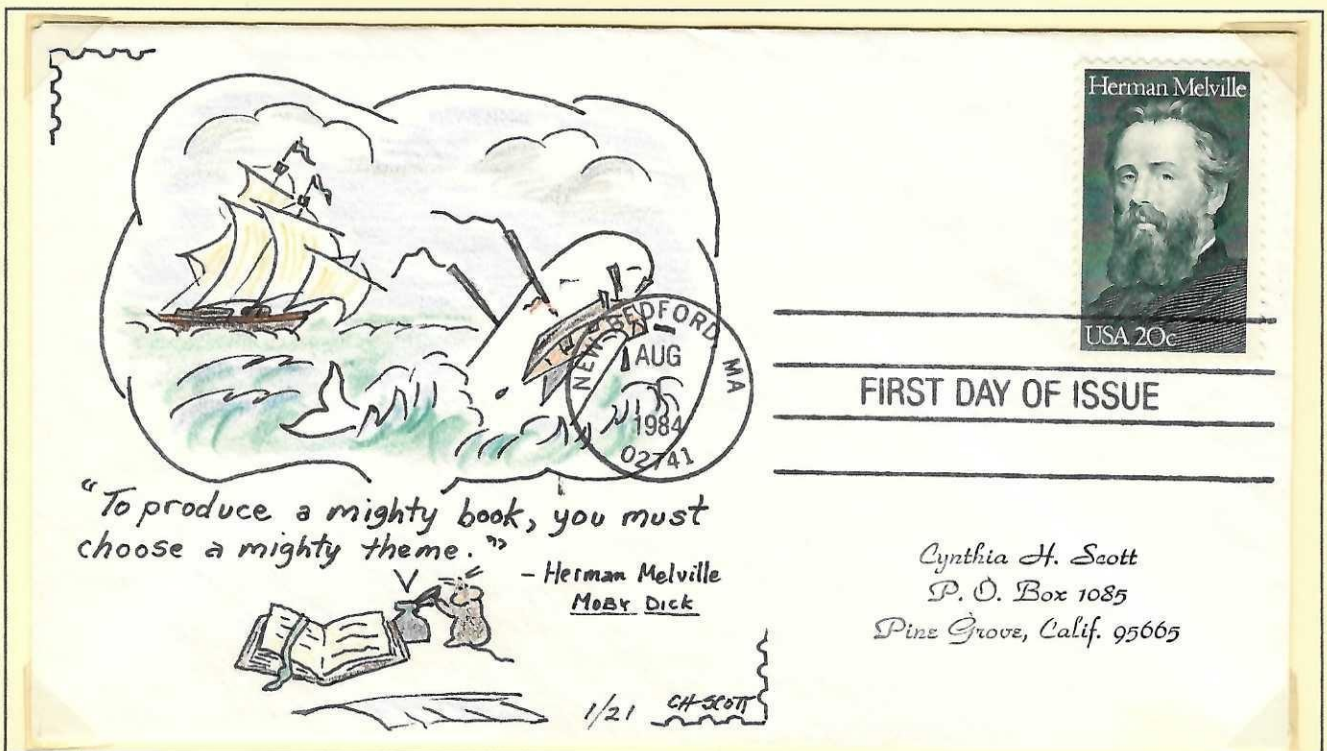 Herman Melville
USA 20c
NEW BEDFORD MA
AUG
1
1984
02741
FIRST DAY OF ISSUE
"To produce a mighty book, you must
choose a mighty theme."
- Herman Melville
MOBY DICK
1/21 CH SCOTT
Cynthia H. Scott
P. O. Box 1085
Pine Grove, Calif. 95665